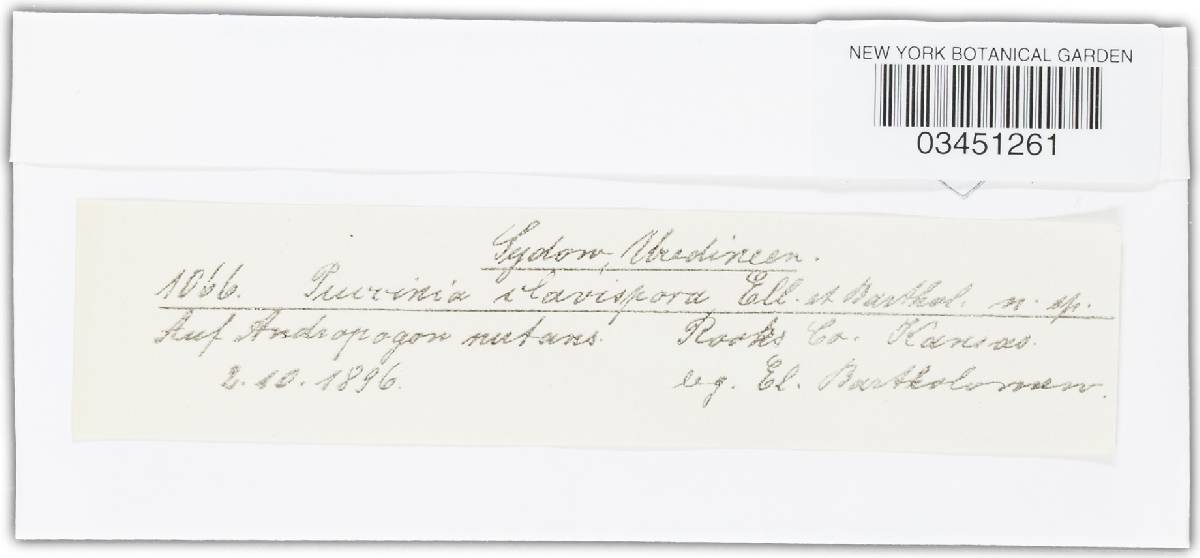 NEW YORK BOTANICAL GARDEN
03451261
Sydow, Uredineen.
1066. Puccinia clavispora Ell. et Barthol. n. sp.
Auf Andropogon nutans. Rooks Co. Kansas.
2.10.1896. leg. El. Bartholomew.